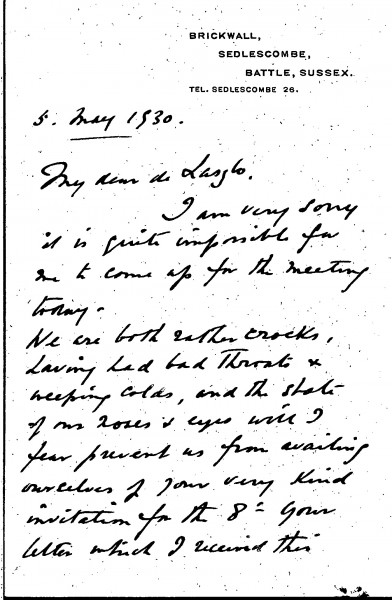 BRICKWALL,
SEDLESCOMBE,
BATTLE, SUSSEX.
TEL. SEDLESCOMBE 26.
5. May 1930.
My dear de Laszlo.
I am very sorry
it is quite impossible for
me to come up for the meeting
today.
We are both rather crocks,
having had bad throats &
weeping colds, and the state
of our noses & eyes will I
fear prevent us from availing
ourselves of your very kind
invitation for the 8th Your
letter which I received this